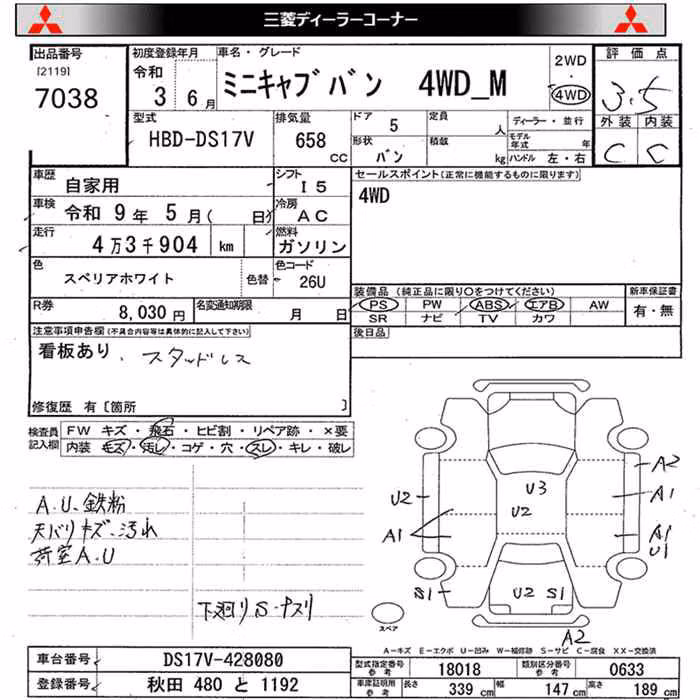 三菱ディーラーコーナー
出品番号
[2119]
7038
初度登録年月
令和
3 6月
車名・グレード
ミニキャブバン 4WD_M
2WD
・
4WD
評価点
3.5
外装 内装
C C
型式
HBD-DS17V
排気量
658
CC
ドア 5
形状 バン
定員 人
積載 kg
ディーラー・並行
モデル年式 年
ハンドル 左・右
車歴 自家用
シフト I5
車検 令和 9年 5月( 日)
冷房 AC
走行 4万3千904 km
燃料 ガソリン
色 スペリアホワイト 色替
色コード 26U
R券 8,030円
名変通知期限 月 日
セールスポイント(正常に機能するものに限ります)
4WD
装備品 (純正品に限り○をつけてください)
PS PW ABS エアB AW
SR ナビ TV カワ
新車保証書
有・無
後日品
注意事項申告欄(不具合内容等は具体的に記入して下さい)
看板あり、スタッドレス
修復歴 有[箇所 ]
検査員記入欄
FW キズ・飛石・ヒビ割・リペア跡・×要
内装 モズ・汚レ・コゲ・穴・スレ・キレ・破レ
A.U.鉄粉
天バリキズ・汚れ
荷室A.U
下廻りS・ナスリ
U2
A1
S1
U3
U2
U2 S1
A2
A1
A1
U1
S1
A2
スペア
A-キズ E-エクボ U-凹み W-補修跡 S-サビ C-腐食 XX-交換済
車台番号 DS17V-428080
登録番号 秋田 480 と 1192
型式指定番号 参考 18018
類別区分番号 参考 0633
車庫証明用 参考 長さ 339 cm 幅 147 cm 高さ 189 cm